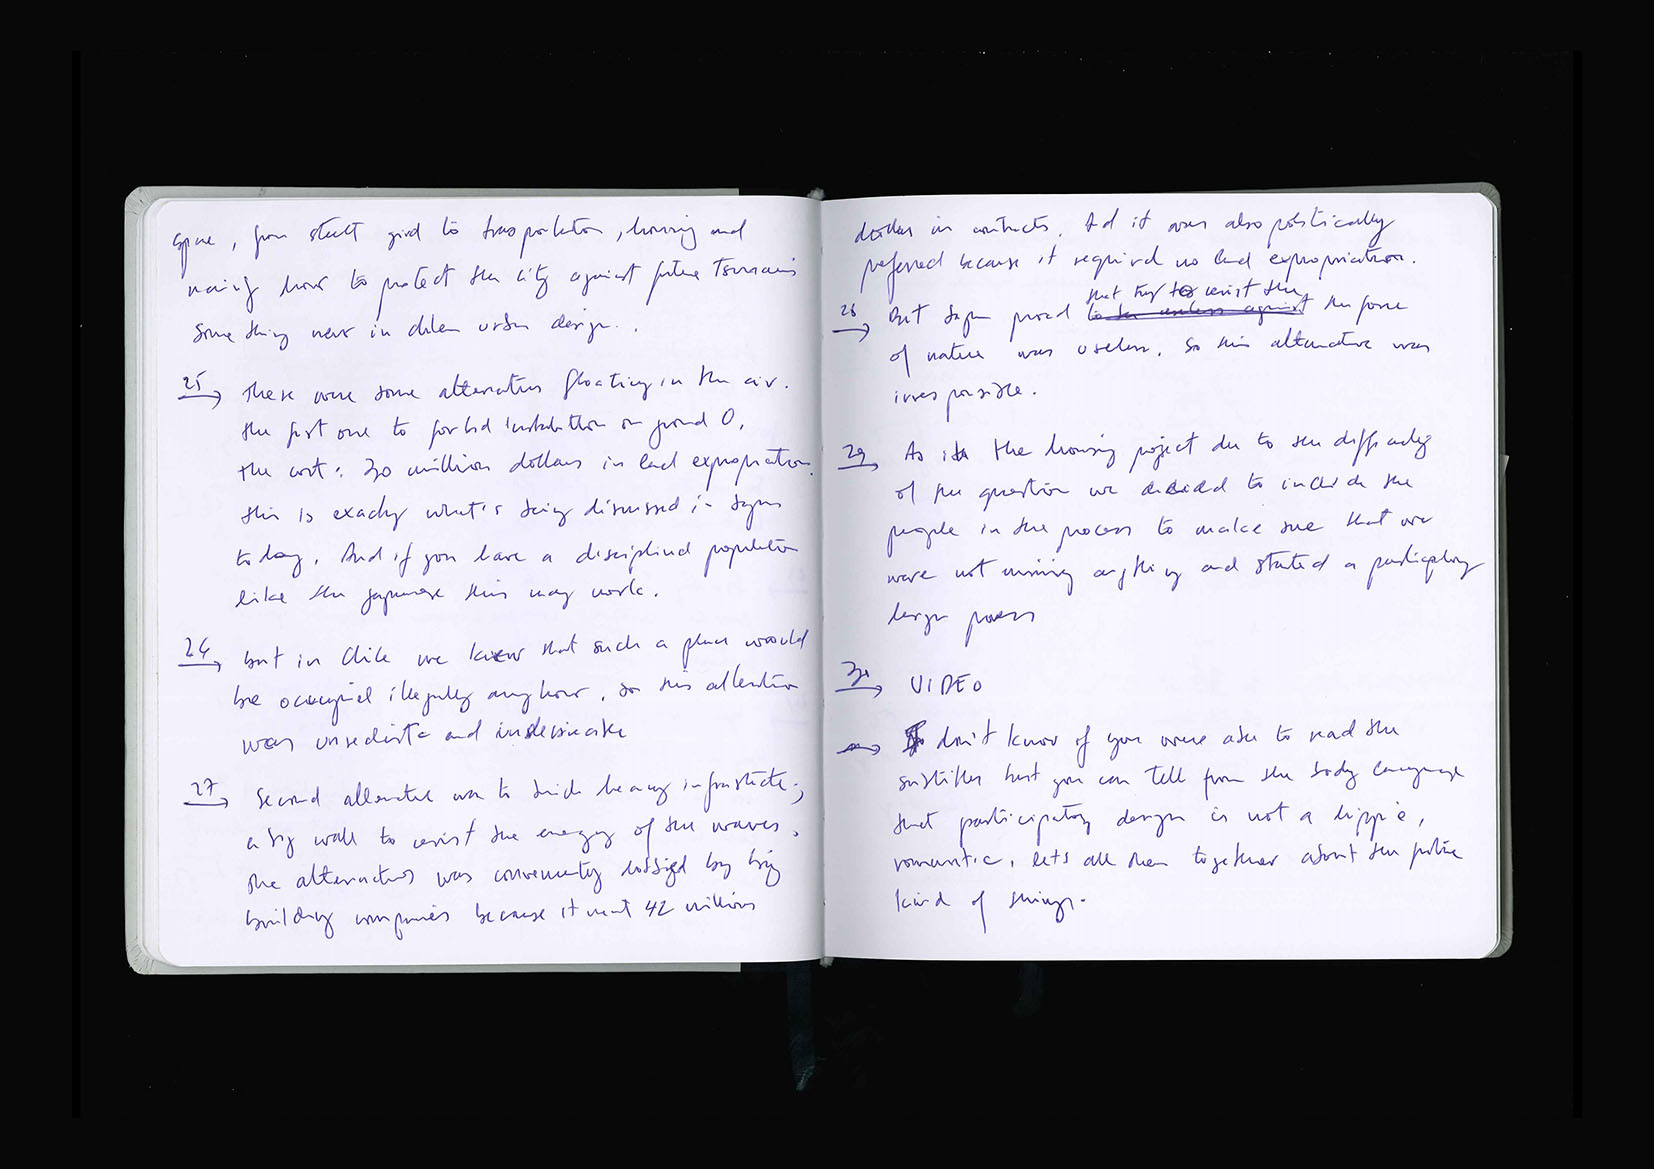 space, from street grid to transportation, housing and
mainly how to protect the city against future tsunamis
something new in chilean urban design..
25 → there were some alternatives floating in the air.
the first one to forbid installation on ground 0.
the cost: 30 million dollars in land expropriation.
this is exactly what's being discussed in Japan
today. And if you have a disciplined population
like the japanese this may work.
26 → but in Chile we know that such a place would
be occupied illegally anyhow. so this alternative
was unrealistic and undesirable
27 → Second alternative was to build heavy infrastructure;
a big wall to resist the energy of the waves.
the alternative was conveniently lobbied by big
building companies because it meant 42 millions
dollars in contracts. And it was also politically
preferred because it required no land expropriation.
that try to resist the
28 → But Japan proved to be useless against the force
of nature was useless. So this alternative was
irresponsible.
29 → As in the housing project due to the difficulty
of the question we decided to include the
people in the process to make sure that we
were not missing anything and started a participatory
design process
30 → VIDEO
→ I don't know if you were able to read the
subtitles but you can tell from the body language
that participatory design is not a hippie,
romantic, lets all dream together about the future
kind of things.